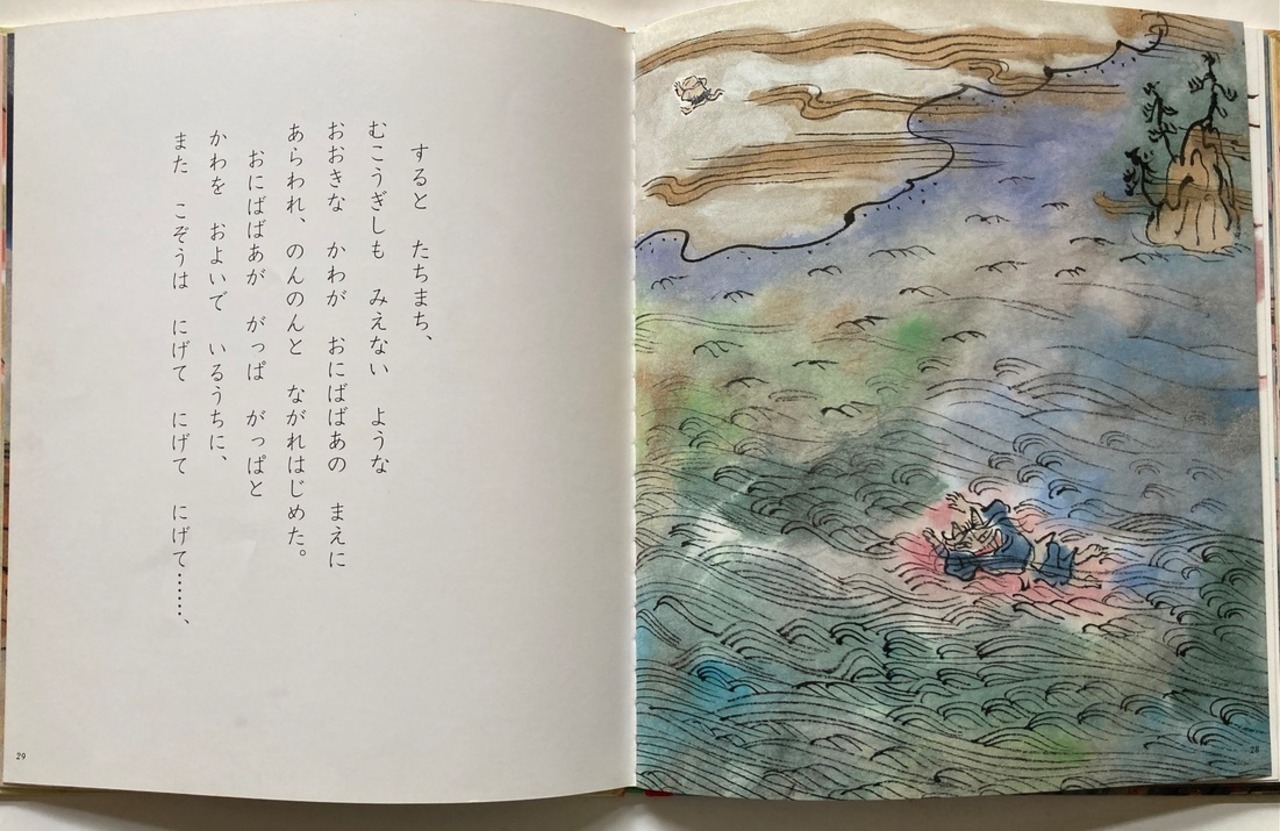 すると　たちまち、
むこうぎしも　みえない　ような
おおきな　かわが　おにばばあの　まえに
あらわれ、のんのんと　ながれはじめた。
おにばばあが　がっぱ　がっぱと
かわを　およいで　いるうちに、
また　こぞうは　にげて　にげて　にげて……、
28
29